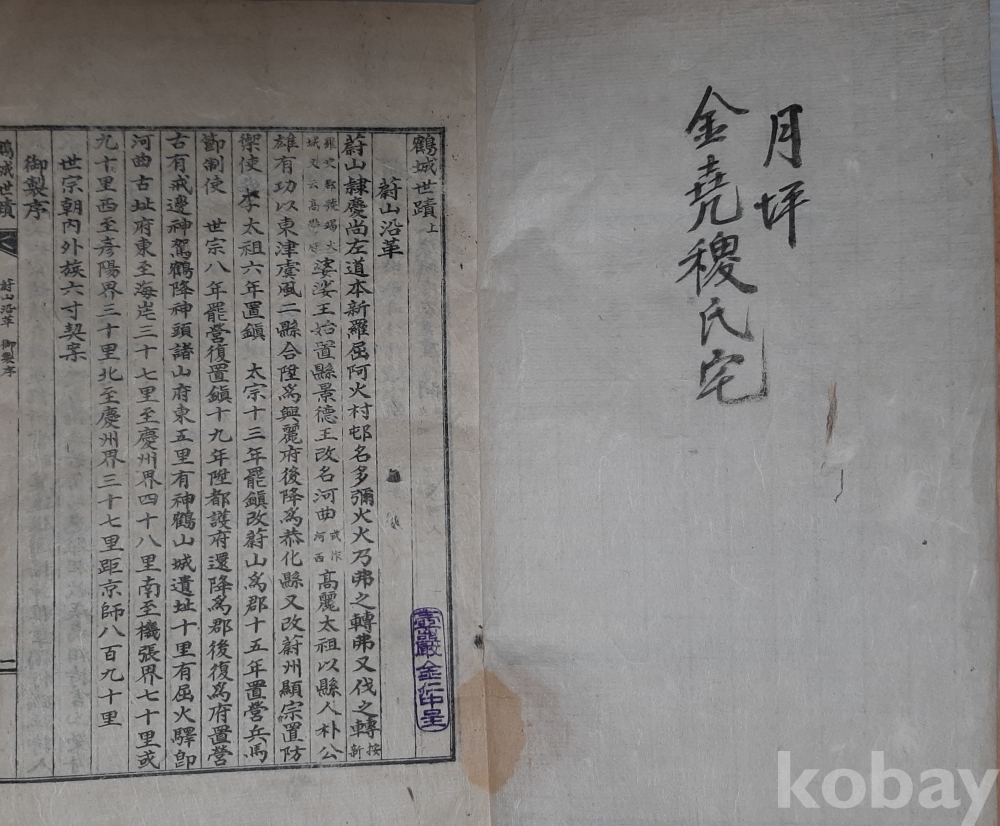 月坪
金堯稷氏宅
鶴城世蹟 上
蔚山沿革
蔚山隷慶尚左道本新羅屈阿火村邨名多彌火火乃弗之轉弗又伐之轉按新
羅史
婆娑王始置縣景德王改名河曲或作河西高麗太祖以縣人朴公
雄有功以東津虞風二縣合陞爲興麗府後降爲恭化縣又改蔚州顯宗置防
禦使 李太祖六年置鎭 太宗十三年罷鎭改蔚山爲郡十五年置營兵馬
節制使 世宗八年罷營復置鎭十九年陞都護府還降爲郡後復爲府置營
古有戒邊神駕鶴降神頭諸山府東五里有神鶴山城遺址十里有屈火驛卽
河曲古址府東至海岸三十七里至慶州界四十八里南至機張界七十里或
九十里西至彦陽界三十里北至慶州界三十七里距京師八百九十里
世宗朝內外族六寸契案
御製序
鶴城世蹟
蔚山沿革 御製序
二
kobay